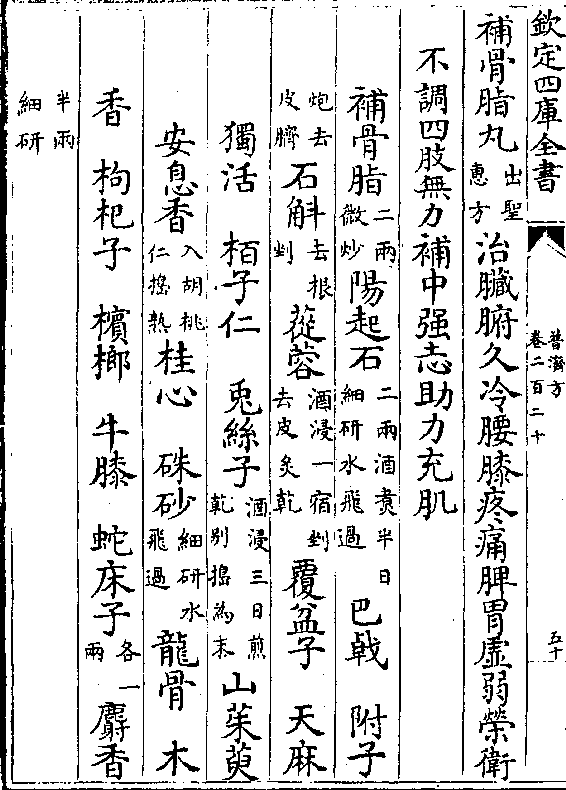 欽定四庫全書
普濟方
卷二百二十
五十
補骨脂丸出聖惠方治臟腑久冷腰膝疼痛脾胃虛弱榮衛
不調四肢無力補中强志助力充肌
補骨脂二兩微炒陽起石二兩酒煑半日細研水飛過巴戟附子
炮去皮臍石斛去根剉蓯蓉酒浸一宿剉去皮炙乾覆盆子天麻
獨活栢子仁兎絲子酒浸三日煎乾别搗為末山茱萸
安息香入胡桃仁搗熟桂心硃砂細研水飛過龍骨木
香枸杞子檳榔牛膝蛇床子各一兩麝香
半兩細研